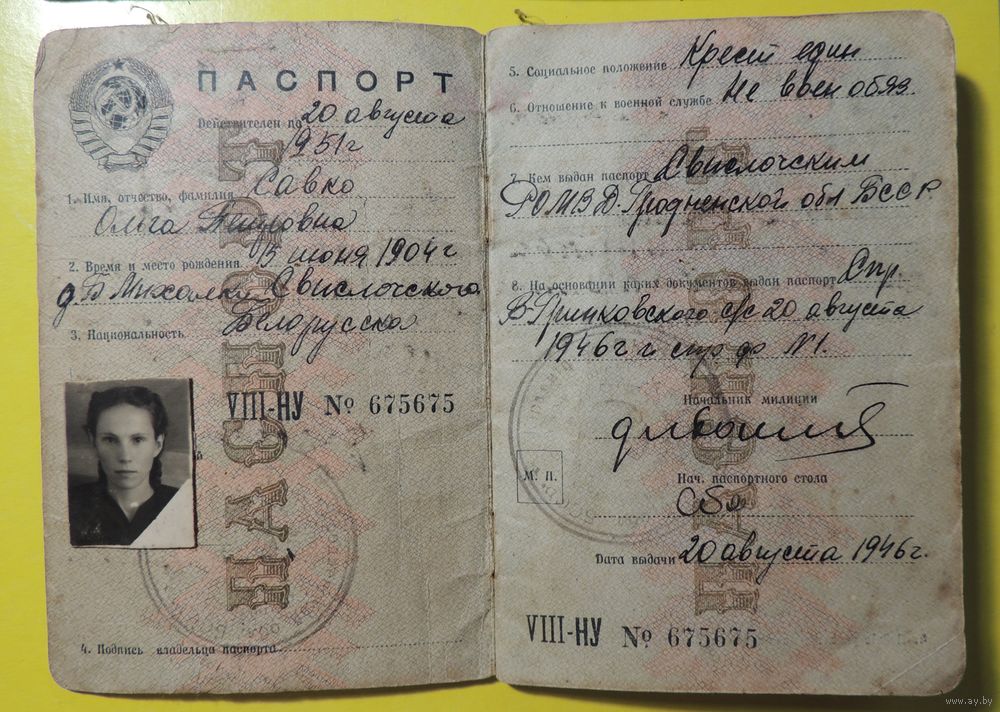 ПАСПОРТ
Действителен по 20 августа
1951 г
1. Имя, отчество, фамилия Савко
Ольга Петровна
2. Время и место рождения 15 июня 1904 г
д. Б Михалки Свислочского
3. Национальность Белорусска
VIII-НУ № 675675
4. Подпись владельца паспорта
5. Социальное положение Крест един
6. Отношение к военной службе Не воен обяз.
7. Кем выдан паспорт Свислочским
РОМВД. Гродненской обл БССР
8. На основании каких документов выдан паспорт Спр.
В-Гринковского с/с 20 августа
1946 г и спр ф №1.
Начальник милиции
М. П.
Нач. паспортного стола
Дата выдачи 20 августа 1946 г.
VIII-НУ № 675675
ПАСПОРТ
ПАСПОРТ
www.ay.by